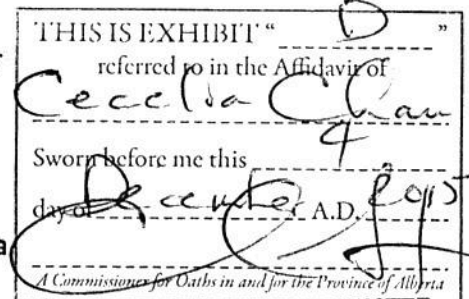 THIS IS EXHIBIT “ D ”
referred to in the Affidavit of
Cecelia Chan
Sworn before me this 4
day of December A.D. 2015
A Commissioner for Oaths in and for the Province of Alberta